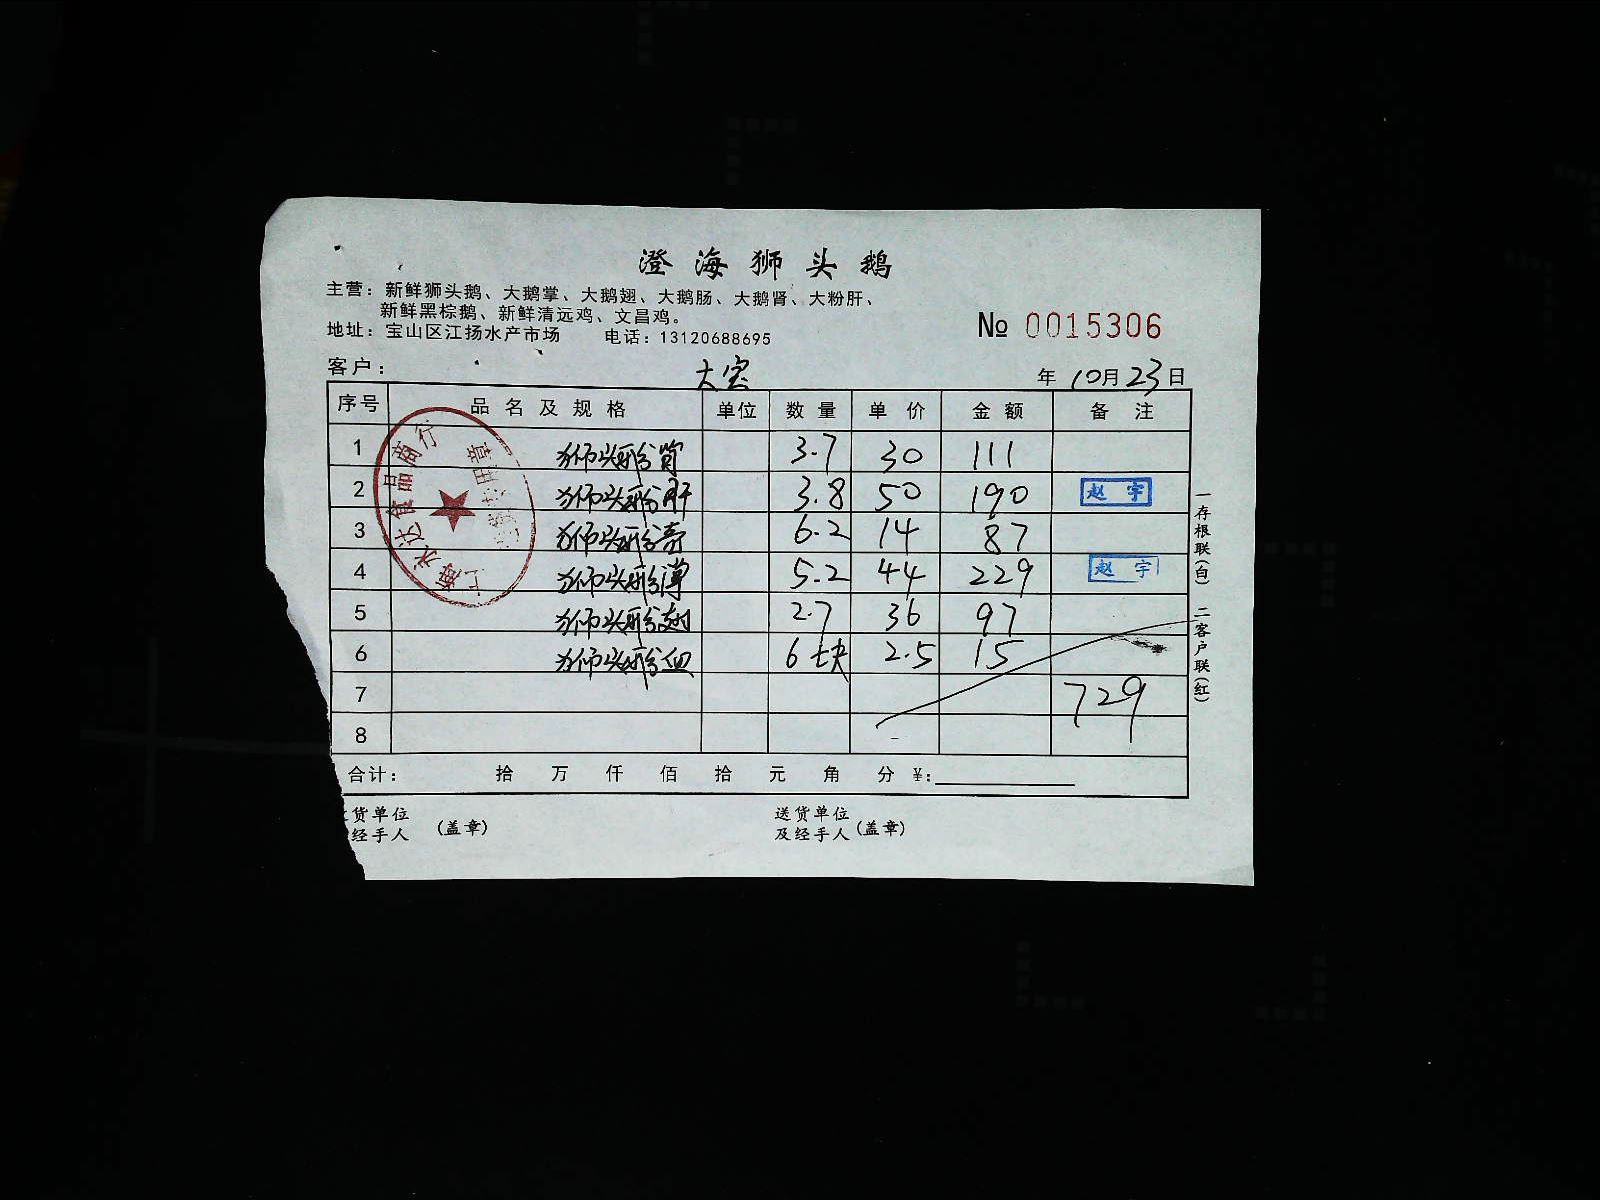 澄海狮头鹅
主营：新鲜狮头鹅、大鹅掌、大鹅翅、大鹅肠、大鹅肾、大粉肝、
新鲜黑棕鹅、新鲜清远鸡、文昌鸡。
地址：宝山区江扬水产市场 电话：13120688695
№ 0015306
客户： 大宝 年 10月23日
序号 品名及规格 单位 数量 单价 金额 备注
1 狮头鹅肾 3.7 30 111
2 狮头鹅肝 3.8 50 190 赵宇
3 狮头鹅 6.2 14 87
4 狮头鹅 5.2 44 229 赵宇
5 狮头鹅翅 2.7 36 97
6 狮头鹅血 6块 2.5 15
7 729
8
合计： 拾 万 仟 佰 拾 元 角 分 ¥:
货单位
经手人 (盖章)
送货单位
及经手人 (盖章)
一存根联(白) 二客户联(红)
上海永达食品商行